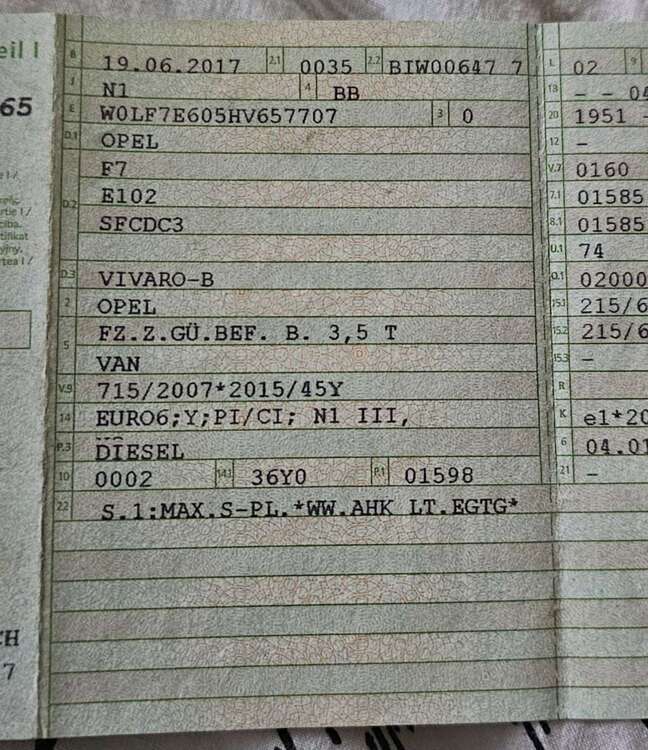 eil I
B 19.06.2017 2.1 0035 2.2 BIW00647 7 L 02 9
J N1 4 BB 13 - - 04
65
E W0LF7E605HV657707 3 0 20 1951 -
D.1 OPEL 12 -
F7 V.7 0160
D.2 E102 7.1 01585
SFCDC3 8.1 01585
U.1 74
D.3 VIVARO-B O.1 02000
2 OPEL 15.1 215/6
5 FZ.Z.GÜ.BEF. B. 3,5 T 15.2 215/6
VAN 15.3 -
V.9 715/2007*2015/45Y R
14 EURO6;Y;PI/CI; N1 III, K e1*20
P.3 DIESEL 6 04.01
10 0002 14.1 36Y0 P.1 01598 21 -
22 S.1:MAX.S-PL.*WW.AHK LT.EGTG*
CH
7